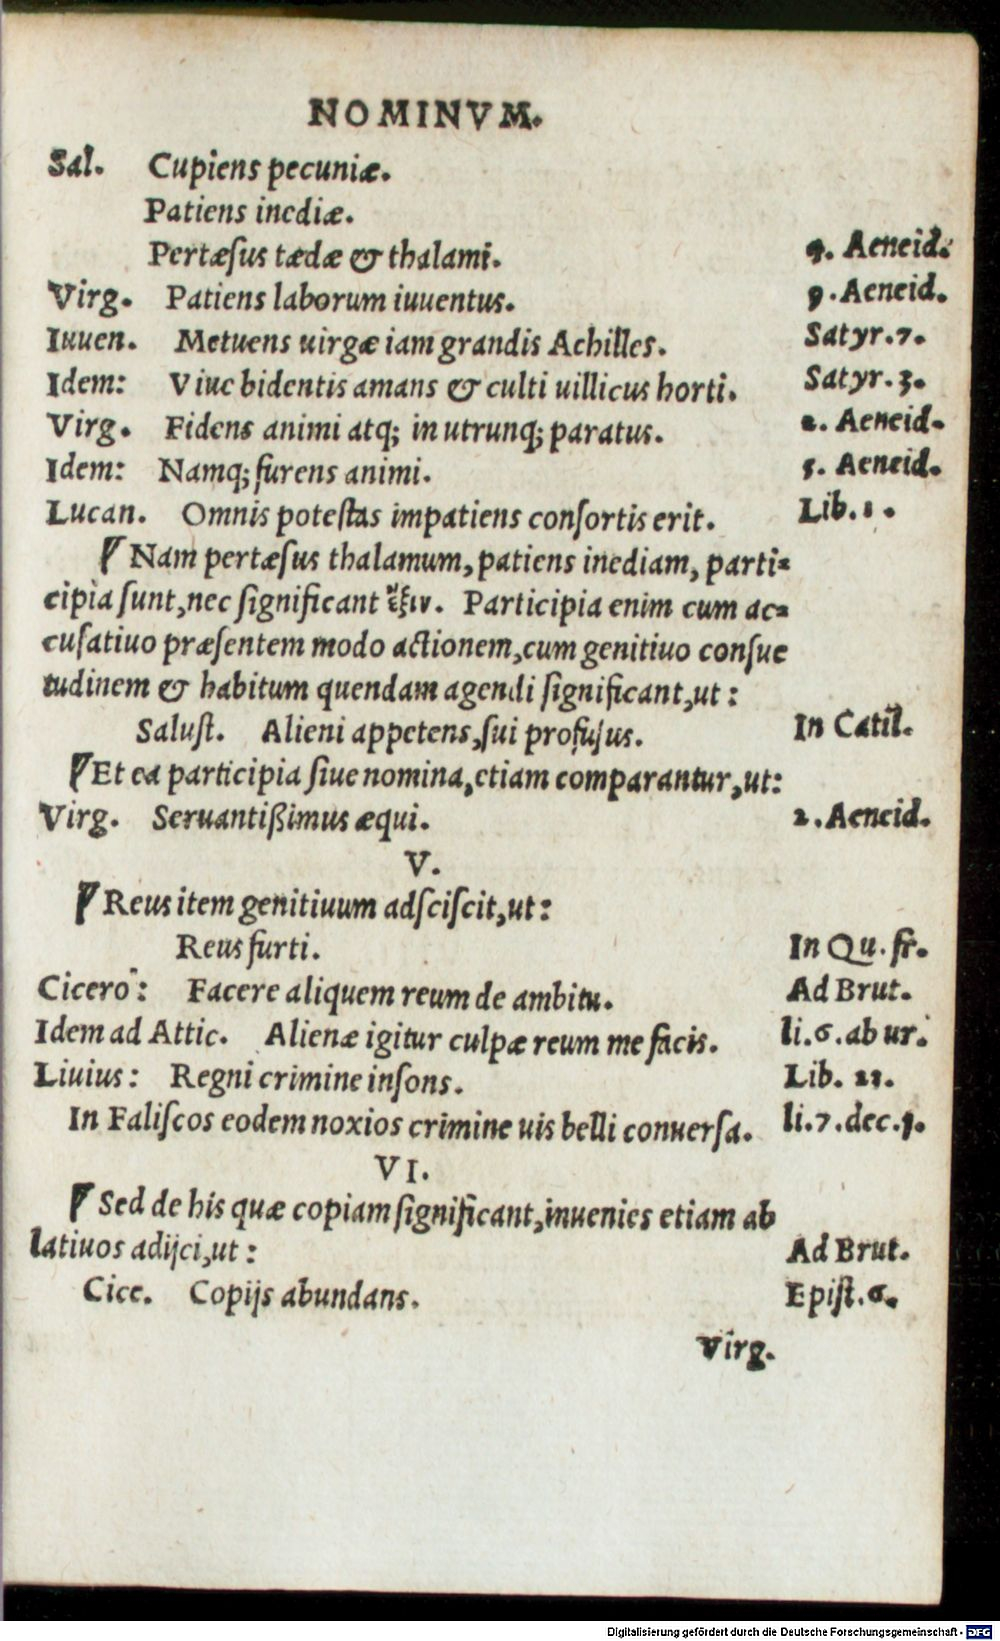 NOMINVM.
Sal. Cupiens pecuniæ.
Patiens inediæ.
Pertæſus tædæ & thalami. 4. Aeneid.
Virg. Patiens laborum iuuentus. 9. Aeneid.
Iuuen. Metuens uirgæ iam grandis Achilles. Satyr. 7.
Idem: Viue bidentis amans & culti uillicus horti. Satyr. 3.
Virg. Fidens animi atq; in utrunq; paratus. 2. Aeneid.
Idem: Namq; furens animi. 5. Aeneid.
Lucan. Omnis poteſtas impatiens conſortis erit. Lib. 1.
¶ Nam pertæſus thalamum, patiens inediam, parti-
cipia ſunt, nec ſignificant ἕξιν. Participia enim cum ac-
cuſatiuo præſentem modo actionem, cum genitiuo conſue
tudinem & habitum quendam agendi ſignificant, ut:
Saluſt. Alieni appetens, ſui profuſus. In Catil.
¶ Et ea participia ſiue nomina, etiam comparantur, ut:
Virg. Seruantißimus æqui. 2. Aeneid.
V.
¶ Reus item genitiuum adſciſcit, ut:
Reus furti. In Qu. fr.
Cicero: Facere aliquem reum de ambitu. Ad Brut.
Idem ad Attic. Alienæ igitur culpæ reum me facis. li. 6. ab ur.
Liuius: Regni crimine inſons. Lib. 22.
In Faliſcos eodem noxios crimine uis belli conuerſa. li. 7. dec. 1.
VI.
¶ Sed de his quæ copiam ſignificant, inuenies etiam ab
latiuos adijci, ut: Ad Brut.
Cice. Copijs abundans. Epiſt. 6.
Virg.
Digitalisierung gefördert durch die Deutsche Forschungsgemeinschaft - DFG